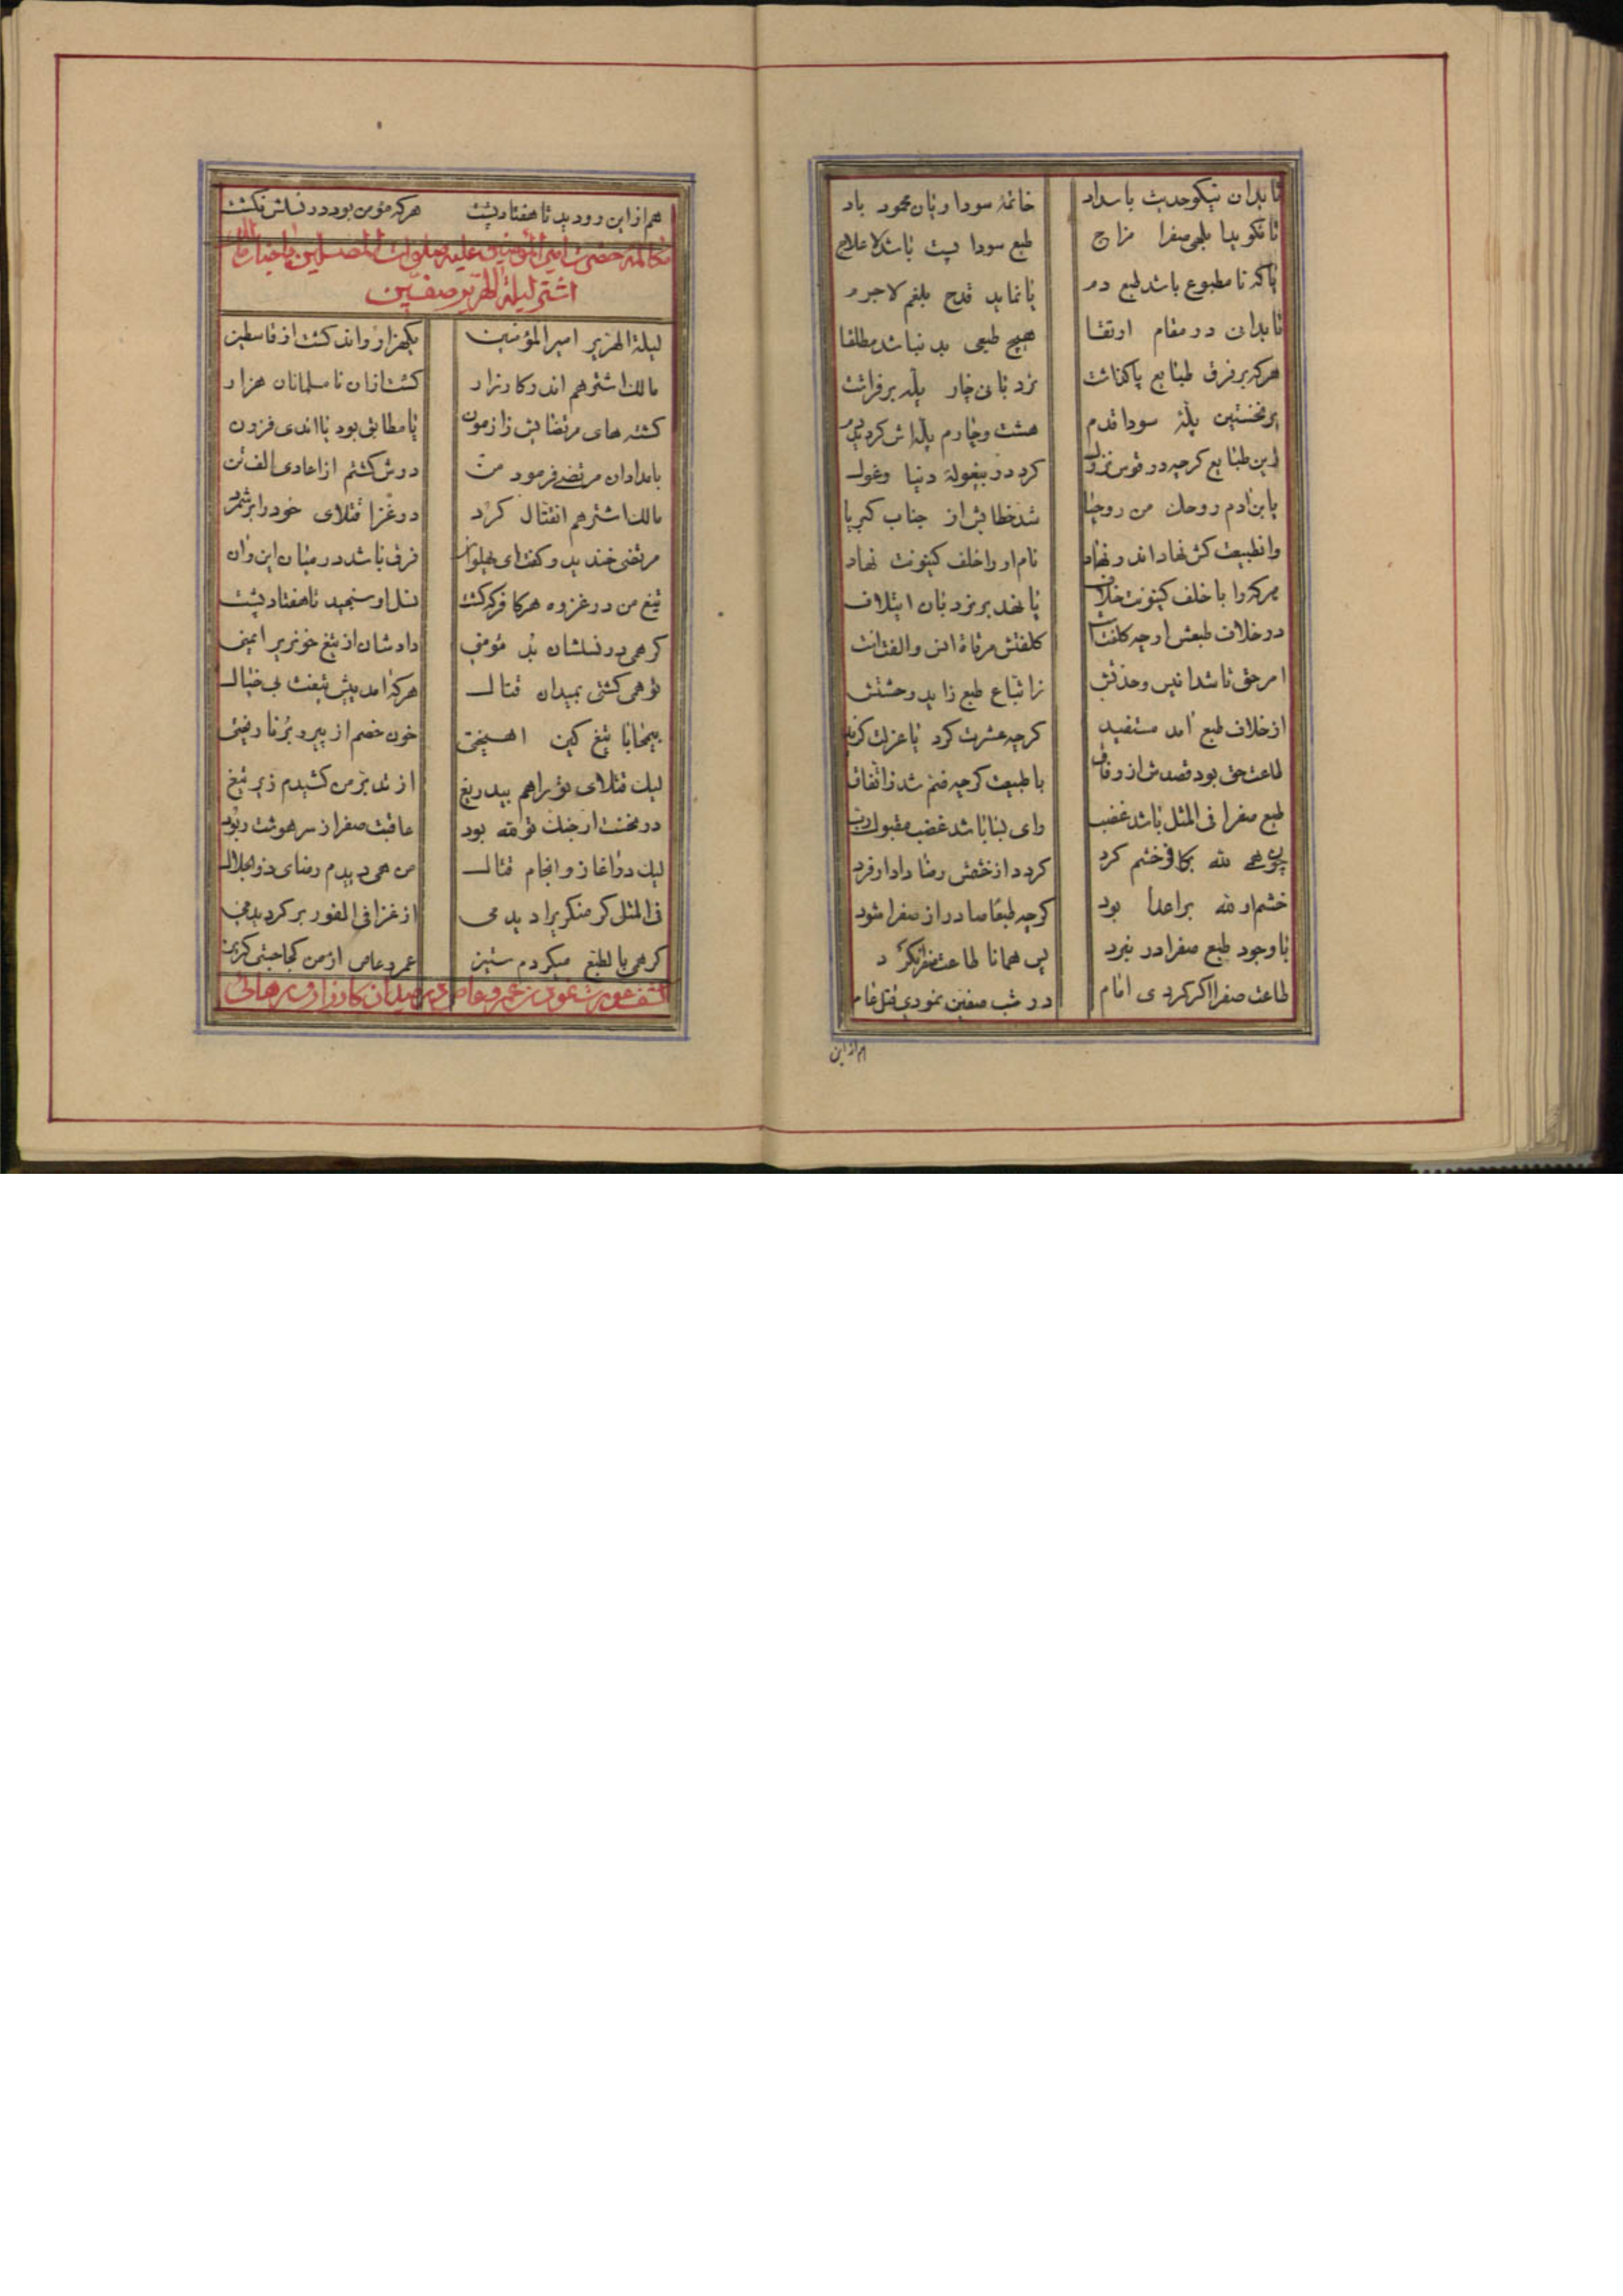 تا بدان نیکو حدیث با سداد خاتمهٔ سودا و پان محمود باد
تا نگوید بلغمی صفرا مزاج طبع سودا نیست باشد لا علاج
یا که نا مطبوع باشد طبع دم یا نماید قدح بلغم لاجرم
تا بدانی در مقام ارتقا هیچ طبعی بد نباشد مطلقا
هرکه بر فرق طبایع پا گذاشت نردبانی چار پله برفراشت
بر نخستین پلهٔ سودا قدم هشت و چارم پله‌اش گردید دم
این طبایع گرچه در قوس نزول کرد در بیغولهٔ دنیا وغول
یا بن آدم روحك من روحنا شد خطابش از جناب کبریا
وان طبیعت کش نهاد اندر نهاد نام او را خلف کینونت نهاد
هرکه را با خلف کینونت خلاف پا نهد بر نردبان ایتلاف
در خلاف طبعش ارچه کلفت است کلفتش مرقاة انس و الفت است
امر حق باشد انیس وحدتش ز اتباع طبع زاید وحشتش
از خلاف طبع آمد مستفید گرچه عشرت کرد یا عزلت گزید
طاعت حق بود قصدش از وفاق با طبیعت گرچه ضم شد ز اتفاق
طبع صفرا فی المثل باشد غضب وای بسا باشد غضب مقبول رب
چون علی لله بکافر خشم کرد کرد از خشمش رضا دادار فرد
خشم او لله بر اعدا بود گرچه طبعا صادر از صفرا شود
با وجود طبع صفرا در نبرد پس همانا طاعت صفرا نکرد
طاعت صفرا اگر کردی امام در شب صفین نمودی قتل عام
هم از این
هم از این رو دید تا هفتاد پشت هرکه مؤمن بود در نسلش نکشت
مکالمهٔ حضرت امیر المؤمنین علیه صلوات المصلین با جناب مالك
اشتر لیلة الهریر صفین
لیلة الهریر امیر المؤمنین یکهزار و اند کشت از قاسطین
مالك اشتر هم اندر کارزار کشت ازان نامسلمانان هزار
کشته‌های مرتضایش ز آزمون یا مطابق بود یا اندی فزون
بامدادان مرتضی فرمود من دوش کشتم از اعادی الف تن
مالك اشتر هم افتتال کرد در غزا قتلای خود را برشمرد
مرتضی خندید و گفت ای پهلوان فرق باشد در میان این و آن
تیغ من در غزوه هر کافر که کشت نسل او سنجید تا هفتاد پشت
گر همی در نسلشان بد مؤمنی دادشان از تیغ خونریز ایمنی
تو همی کشتی بمیدان قتال هرکه آمد پیش تیغت بی خیال
بیمحابا تیغ کین آهیختی خون خصم از پیر و برنا ریختی
لیك قتلای تو را هم بیدریغ از تدبر من کشیدم زیر تیغ
در نخست ار جنگ تو لله بود عاقبت صفرا ز سر هوشت ربود
لیك در آغاز و انجام قتال من همی دیدم رضای ذوالجلال
فی المثل گر منکری را دیدمی از غزا فی الفور برگردیدمی
گر همی با لطبع میکردم ستیز عمرو عاص از من کجا جستی گریز
کشف عورت نمودن عمرو عاص در میدان کارزار و رهائی